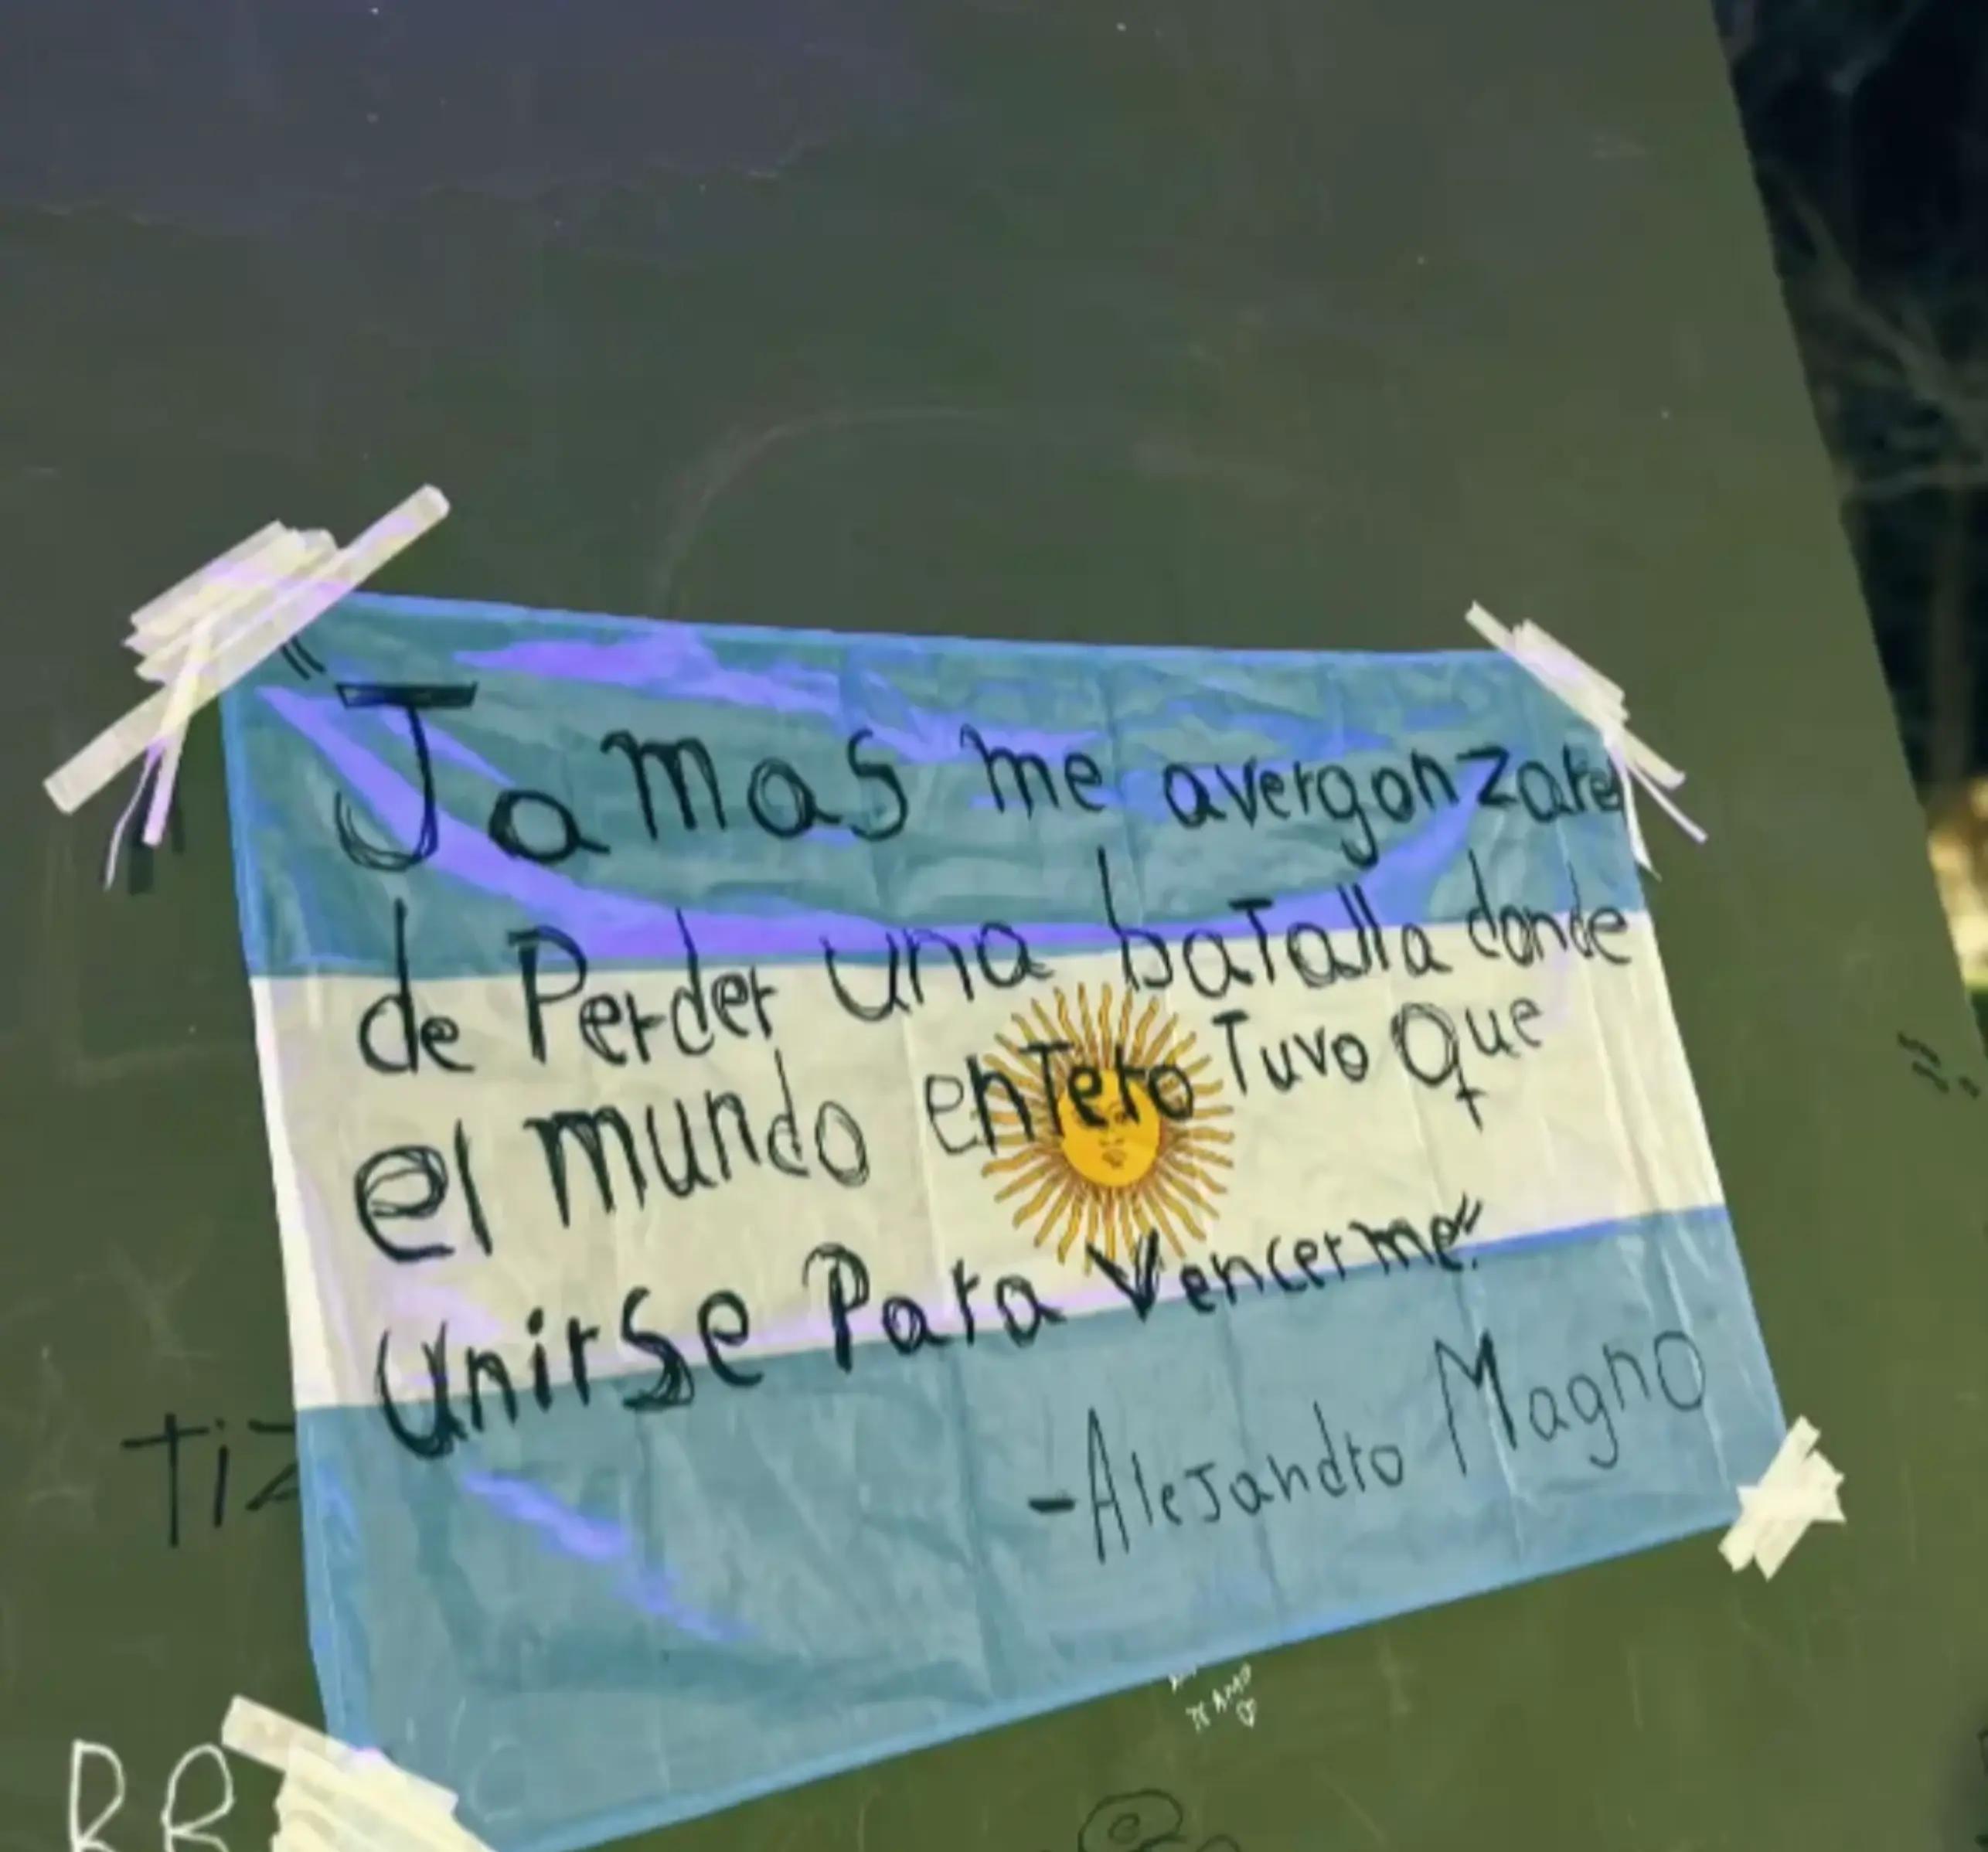 "Jamas me avergonzare
de Perder una batalla donde
el mundo entero Tuvo Que
unirse Para Vencerme."
-Alejandro Magno
Tiz
TE AMO
RR